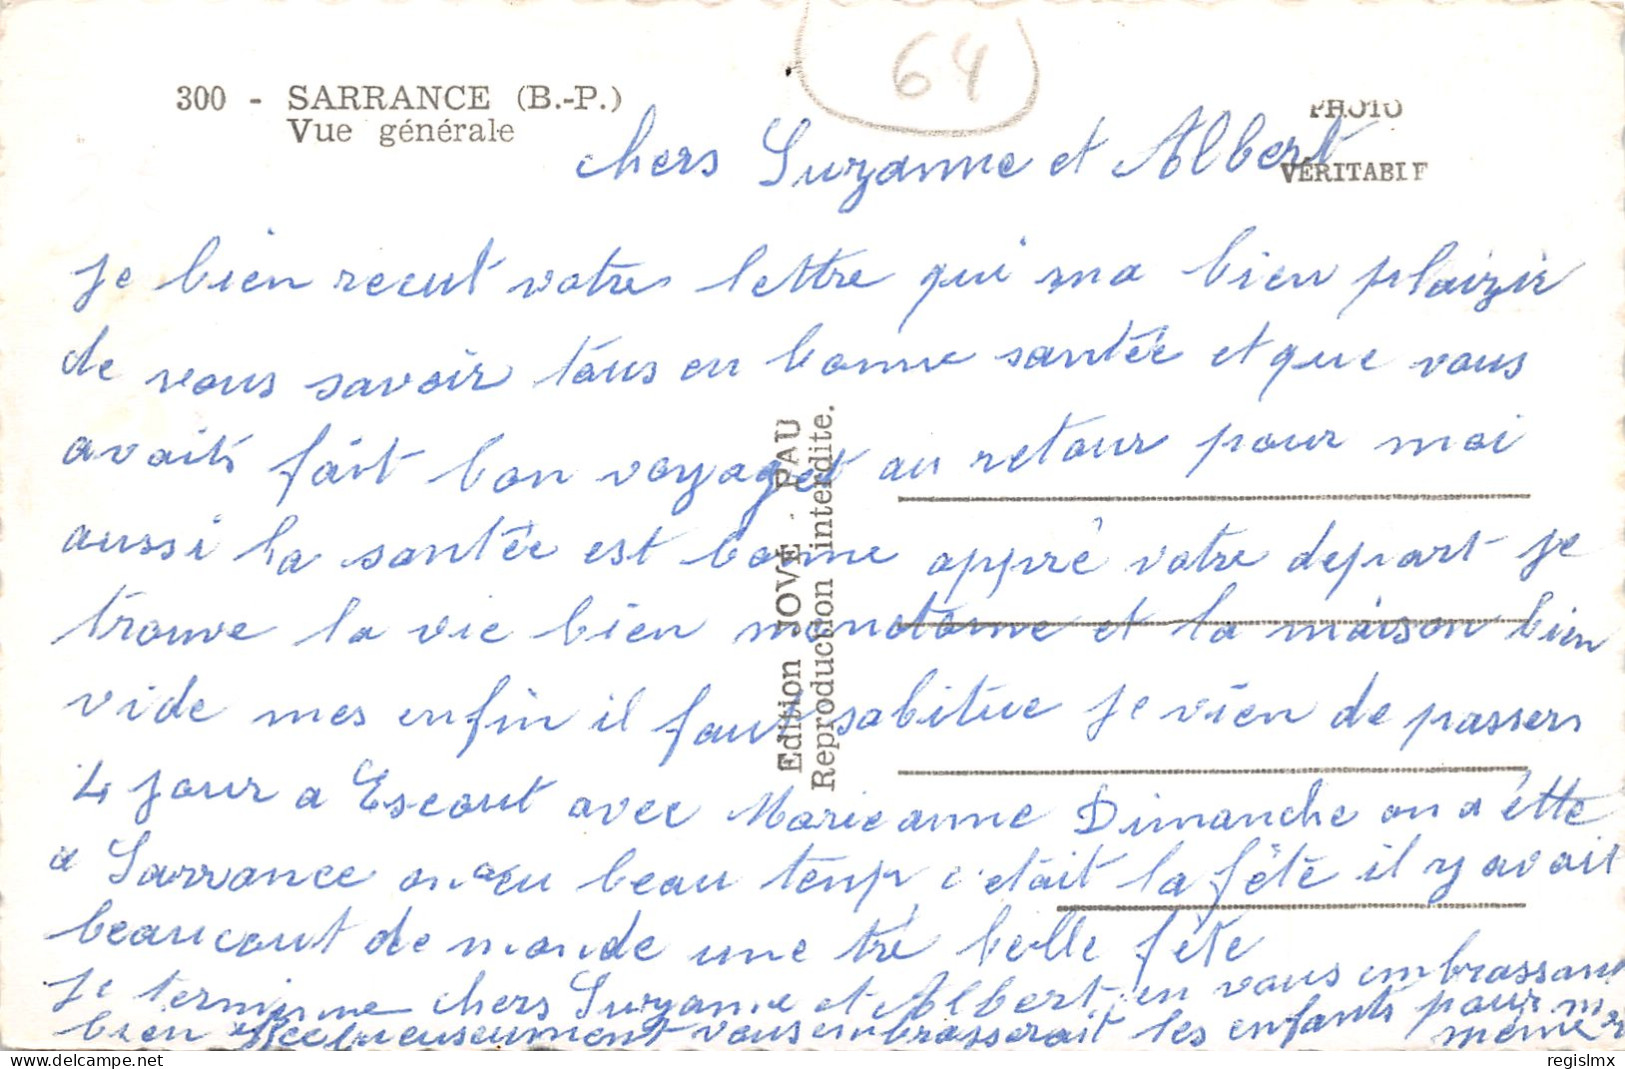 64
300 - SARRANCE (B.-P.)
Vue générale
PHOTO
VÉRITABLE
chers Suzanne et Albert
je bien recut votre lettre qui ma bien plaizir
de vous savoir tous en bonne santée et que vous
avait fait bon voyaget au retour pour moi
aussi la santée est bonne apprè votre depart je
trouve la vie bien monotonne et la maison bien
vide mes enfin il faut sabitue je vien de passers
4 jour a Escout avec Marieanne Dimanche on a étte
a Sarrance on a eu beau temp c'etait la fête il y avait
beaucout de monde une trè belle fête
je termine chers Suzanne et Albert en vous embrassant
bien vous embrasserait les enfants pour m
mémé
Edition JOVÉ - PAU
Reproduction interdite.
regislmx